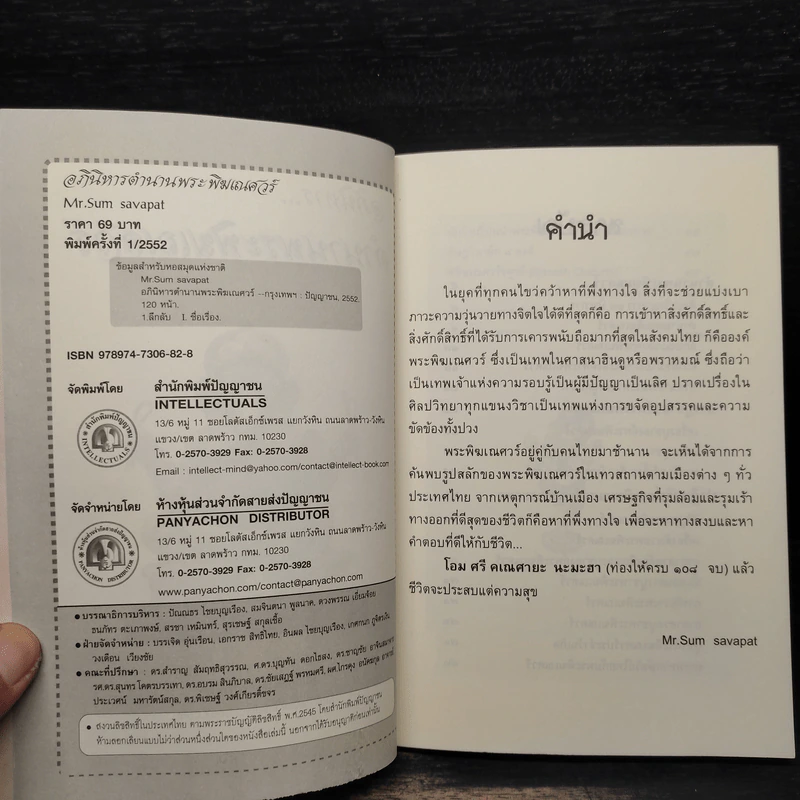 อภินิหารตำนานพระพิฆเณศวร์
Mr.Sum savapat
ราคา 69 บาท
พิมพ์ครั้งที่ 1/2552
ข้อมูลสำหรับหอสมุดแห่งชาติ
Mr.Sum savapat
อภินิหารตำนานพระพิฆเณศวร์ --กรุงเทพฯ : ปัญญาชน, 2552.
120 หน้า.
1.ลึกลับ I. ชื่อเรื่อง.
ISBN 978974-7306-82-8
จัดพิมพ์โดย สำนักพิมพ์ปัญญาชน
INTELLECTUALS
13/6 หมู่ 11 ซอยโลตัสเอ็กซ์เพรส แยกวังหิน ถนนลาดพร้าว-วังหิน
แขวง/เขต ลาดพร้าว กทม. 10230
โทร. 0-2570-3929 Fax: 0-2570-3928
Email : intellect-mind@yahoo.com/contact@intellect-book.com
สำนักพิมพ์ปัญญาชน
INTELLECTUALS
จัดจำหน่ายโดย ห้างหุ้นส่วนจำกัดสายส่งปัญญาชน
PANYACHON DISTRIBUTOR
13/6 หมู่ 11 ซอยโลตัสเอ็กซ์เพรส แยกวังหิน ถนนลาดพร้าว-วังหิน
แขวง/เขต ลาดพร้าว กทม. 10230
โทร. 0-2570-3929 Fax: 0-2570-3928
www.panyachon.com/contact@panyachon.com
PANYACHON DISTRIBUTOR
● บรรณาธิการบริหาร : ปัณณธร ไชยบุญเรือง, สมจินตนา พูลนาค, ดวงพรรณ เอี่ยมจ้อย
ธนภัทร ตะเภาพงษ์, สรชา เหมินทร์, สุรเชษฐ์ สกุลเชื้อ
● ฝ่ายจัดจำหน่าย : บรรเจิด อุ่นเรือน, เอกราช สิทธิไทย, อินผล ไชยบุญเรือง, เกศกนก ภูจิตรเงิน
วงเดือน เวียงชัย
● คณะที่ปรึกษา : ดร.สำราญ สัมฤทธิสุวรรณ, ศ.ดร.บุญทัน ดอกไธสง, ดร.ชาญชัย
รศ.ดร.สุนทร โคตรบรรเทา, ดร.อบรม สินภิบาล, ดร.ชัยเสฏฐ์ พรหมศรี, ผศ.ไกรดุง
ประเวศน์ มหารัตน์สกุล, ดร.พิเชษฐ์ วงศ์เกียรติ์ขจร
● สงวนลิขสิทธิ์ในประเทศไทย ตามพระราชบัญญัติลิขสิทธิ์ พ.ศ.2545 โดยสำนักพิมพ์ปัญญาชน
ห้ามลอกเลียนแบบไม่ว่าส่วนหนึ่งส่วนใดของหนังสือเล่มนี้ นอกจากได้รับอนุญาตก่อนเท่านั้น
คำนำ
ในยุคที่ทุกคนไขว่คว้าหาที่พึ่งทางใจ สิ่งที่จะช่วยแบ่งเบา
ภาวะความวุ่นวายทางจิตใจได้ดีที่สุดก็คือ การเข้าหาสิ่งศักดิ์สิทธิ์และ
สิ่งศักดิ์สิทธิ์ที่ได้รับการเคารพนับถือมากที่สุดในสังคมไทย ก็คือองค์
พระพิฆเณศวร์ ซึ่งเป็นเทพในศาสนาฮินดูหรือพราหมณ์ ซึ่งถือว่า
เป็นเทพเจ้าแห่งความรอบรู้เป็นผู้มีปัญญาเป็นเลิศ ปราดเปรื่องใน
ศิลปวิทยาทุกแขนงวิชาเป็นเทพแห่งการขจัดอุปสรรคและความ
ขัดข้องทั้งปวง
พระพิฆเณศวร์อยู่คู่กับคนไทยมาช้านาน จะเห็นได้จากการ
ค้นพบรูปสลักของพระพิฆเณศวร์ในเทวสถานตามเมืองต่าง ๆ ทั่ว
ประเทศไทย จากเหตุการณ์บ้านเมือง เศรษฐกิจที่รุมล้อมและรุมเร้า
ทางออกที่ดีสุดของชีวิตก็คือหาที่พึ่งทางใจ เพื่อจะหาทางสงบและหา
คำตอบที่ดีให้กับชีวิต...
โอม ศรี คเณศายะ นะมะฮา (ท่องให้ครบ ๑๐๘ จบ) แล้ว
ชีวิตจะประสบแต่ความสุข
Mr.Sum savapat